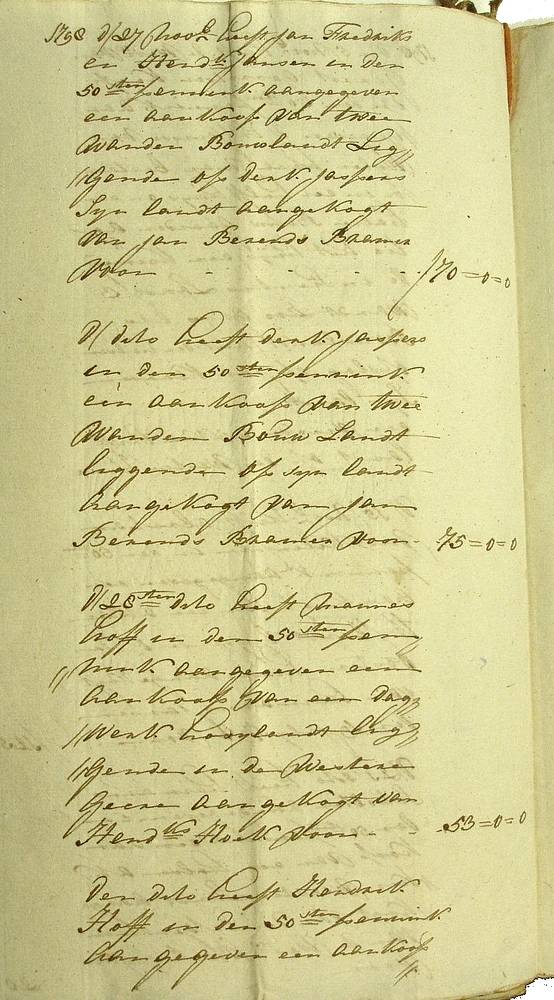 1798 d/27 Nov. heeft Jan Fredriks
en Hend.k Jansen in den
50 sten pennink aangegeven
een aankoop van twee
Wanden Bouwlandt Lig„
„gende op Derk Jaspers
Syn landt aangekogt
van Jan Berends Bramer
voor - - - - ƒ 70=0=0
d/ dito heeft Derk Jaspers
in den 50 sten pennink
een aankoop van twee
Wanden Bouw Landt
liggende op syn landt
aangekogt van Jan
Berends Bramer voor - 75=0=0
d/28 sten dito heeft Mannes
hoff in den 50 sten pen„
„nink aangegeven een
aankoop van een dag„
„werk hooylandt lig„
„gende in de Westere
Geere aangekogt van
Hend.ks Hoek voor - - 53=0=0
den dito heeft Hendrik
Hoff in den 50 sten pennink
aangegeven een aankoop